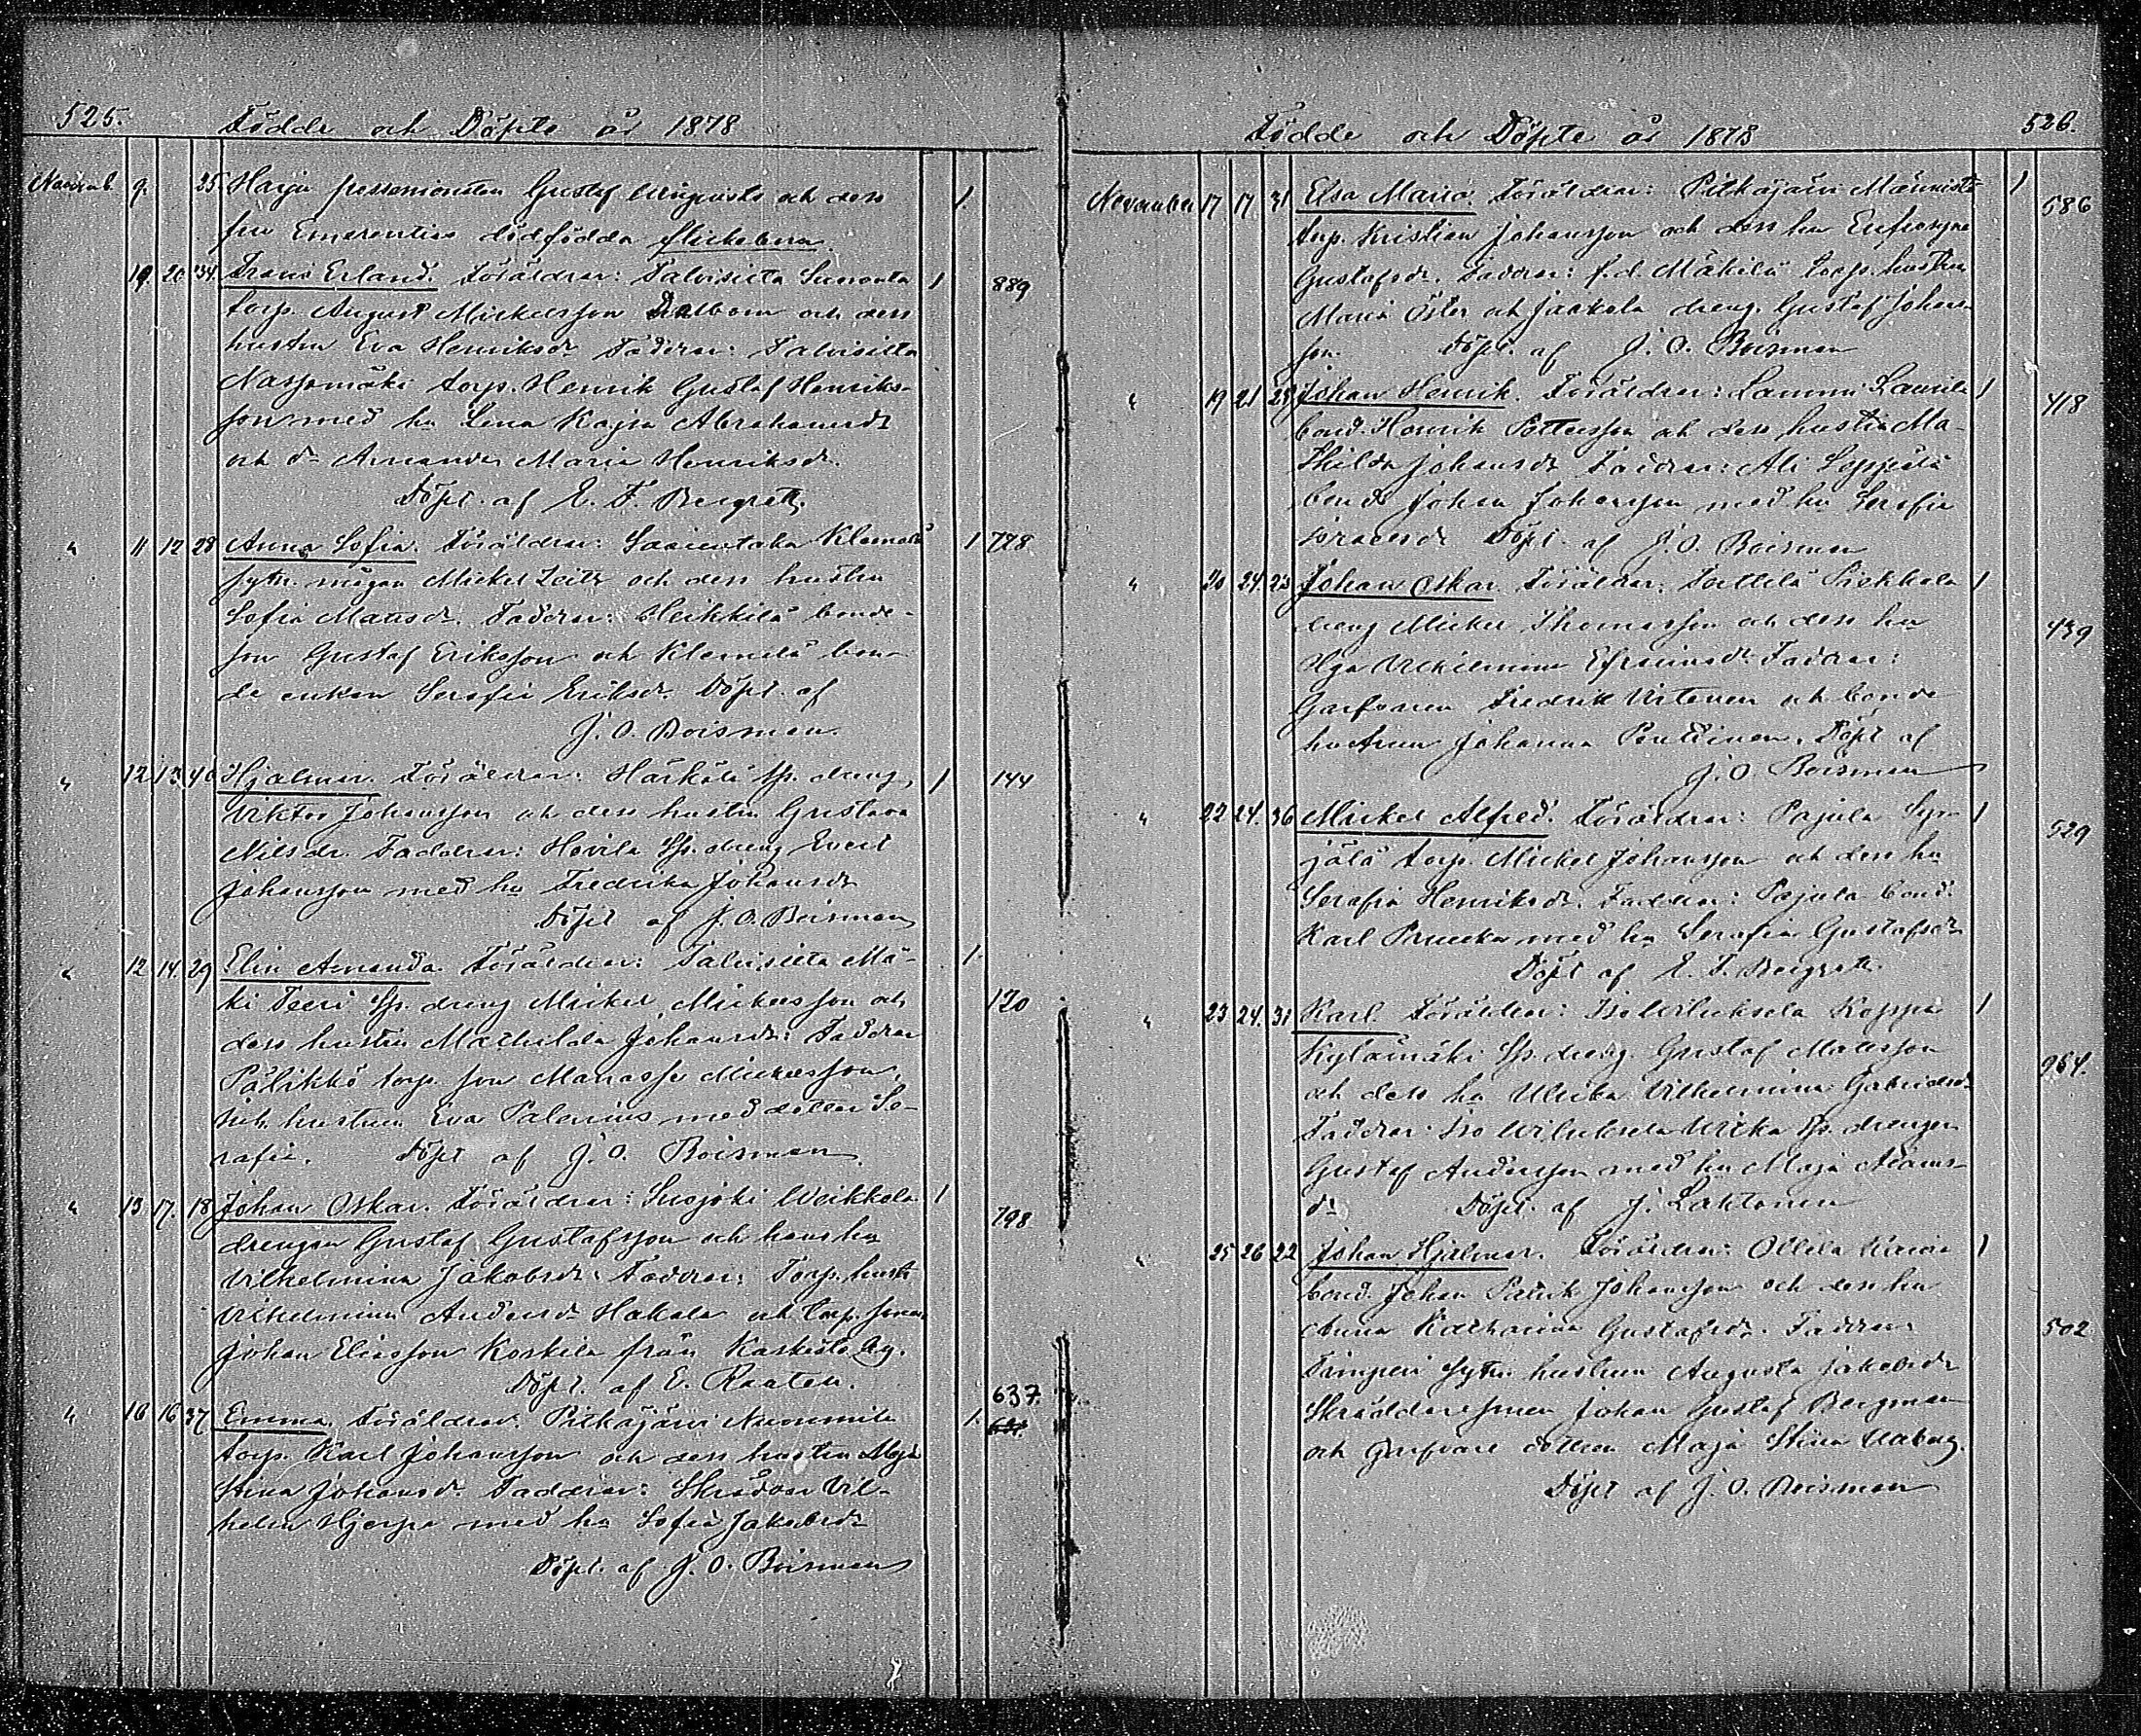 525. Födde och Döpte år 1878
Novemb. 9. 35. Harju possessionaten Gustaf och dess 1.
fru Emerentias dödfödda flickebarn.
19. 20 34. Frans Erland. Föräldrar: Talvisilta Sunonta 1 889
torp. August Mickelsson Dalbom och dess
hustru Eva Henriksdr Faddrar: Talvisilta
Nassomäki torp. Henrik Gustaf Henriks-
son med hu Lena Kajsa Abrahamsdr
och d- Amanda Maria Henriksdr.
Döpt. af E. F. Bergroth.
" 11 12 28 Anna Sofia. Föräldrar: Saarentaka Klemelä 1 728
sytn. mågen Mickel Zeitz och dess hustru
Sofia Mattsdr. Faddrar: Heikkilä bonde-
son Gustaf Eriksson och Klemelä bon-
de enkan Serafia Eriksdr. Döpt. af
J. O. Boisman.
" 12 13 40 Hjalmar. Föräldrar: Härkälä sp. dreng, 1 144
Viktor Johansson och dess hustru Gustava
Nilsdr. Faddrar: Hovila sp. dreng Evert
Johansson med hu Fredrika Johansdr
Döpt af J. O. Boisman
" 12 14 29 Elin Amanda. Föräldrar: Talvisilta Mä- 1.
ki Teeri sp. dreng Mickel Mickelsson och 120
dess hustru Mathilda Johansdr: Faddrar
Pälikkö torp. son Manasse Mickelsson,
hustrun Eva Palenius med dotter Se-
rafia. Döpt af J. O. Boisman.
" 13 17. 18 Johan Oskar. Föräldrar: Suojoki Weikkola 1 798
drengen Gustaf Gustafsson och hans hu
Vilhelmina Jakobsdr. Faddrar: Torp. hustr
Vilhelmina Andersdr Hakala och torp. sonen
Johan Eliasson Koskela från Karkista by.
Döpt. af E. Raaten.
" 16 16 37 Emma. Föräldrar: Pitkäjärvi Nummila 1. 637.
torp. Karl Johansson och dess hustru Maja
Stina Johansdr. Faddrar: Skräddar Vil-
helm Hjerpe med hu Sofia Jakobsdr
Döpt. af J. O. Boisman
Födde och Döpte år 1878 526.
November 17 17. 31 Elsa Maria. Föräldrar: Pitkäjärvi Männistö 1 586
torp. Kristian Johansson och dess hu Eufrosyne
Gustafsdr. Faddrar: f.d. Mäkilä torp. hustru
Maria Öster och Jaakola dreng. Gustaf Johans-
son. Döpt. af J. O. Boisman
" 19 21 28 Johan Henrik. Föräldrar: Lammi Laurila 1 418
bond. Henrik Pettersson och dess hustru Ma-
thilda Johansdr Faddrar: Ali Seppälä
bond Johan Johansson med hu Serafia
Israelsdr Döpt. af J. O. Boisman
" 20 24. 23 Johan Oskar. Föräldrar: Tuttila Pirkkala 1
dreng Mickel Thomasson och dess hu 439
Olga Vilhelmina Efraimsdr Faddrar:
Garfvaren Fredrik Virtanen och bonde
hustrun Johanna Penttinen. Döpt af
J. O. Boisman
" 22 24. 36 Mickel Alfred. Föräldrar: Pajula Syr- 1 529
jälä torp. Mickel Johansson och dess hu
Serafia Henriksdr. Faddrar: Pajula bond.
Karl med hu Serafia Gustafsdr
Döpt af E. F. Bergroth.
" 23 24. 31 Karl Föräldrar: Iso Wiluksela Koppa 1
Kylämäki sp. dreng. Gustaf Matsson 964.
och dess hu Ulrika Vilhelmina Gabrielsdr
Faddrar: Iso Wiluksela sp. drengen
Gustaf Andersson med hu Maja Adams-
dr Döpt. af J. Lahtonen
" 25 26 22 Johan Hjalmar. Föräldrar: Ollila 1
bond. Johan Patrik Johansson och dess hu
Anna Katharina Gustafsdr. Faddrar: 502
Timperi sytn. hustrun Augusta Jakobsdr
Skräddaresonen Johan Gustaf Bergman
och garfvare dottern Maja Stina
Döpt af J. O. Boisman